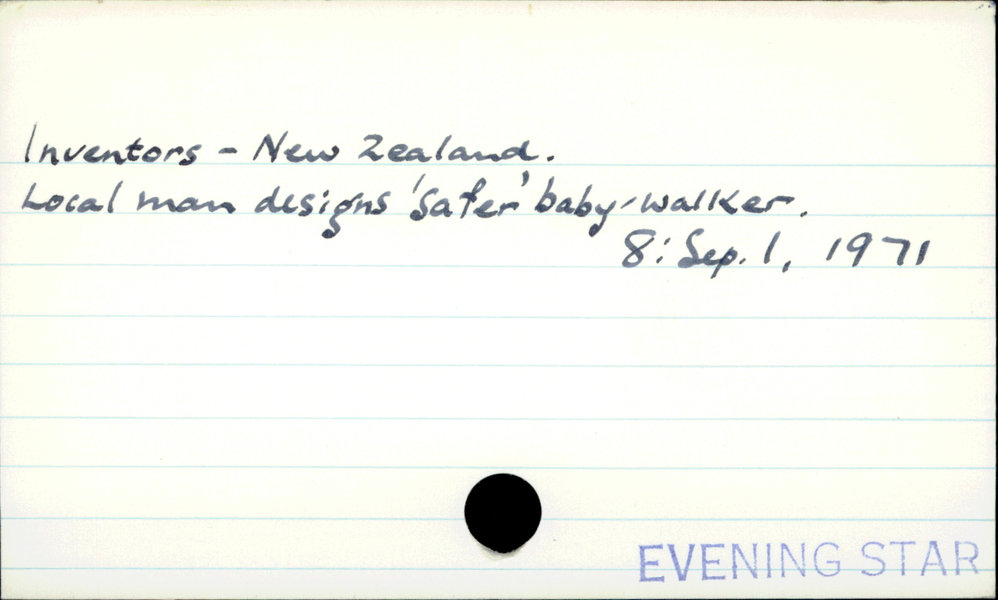 Inventors - New Zealand.
Local man designs 'safer' baby-walker.
8: Sep. 1, 1971
EVENING STAR